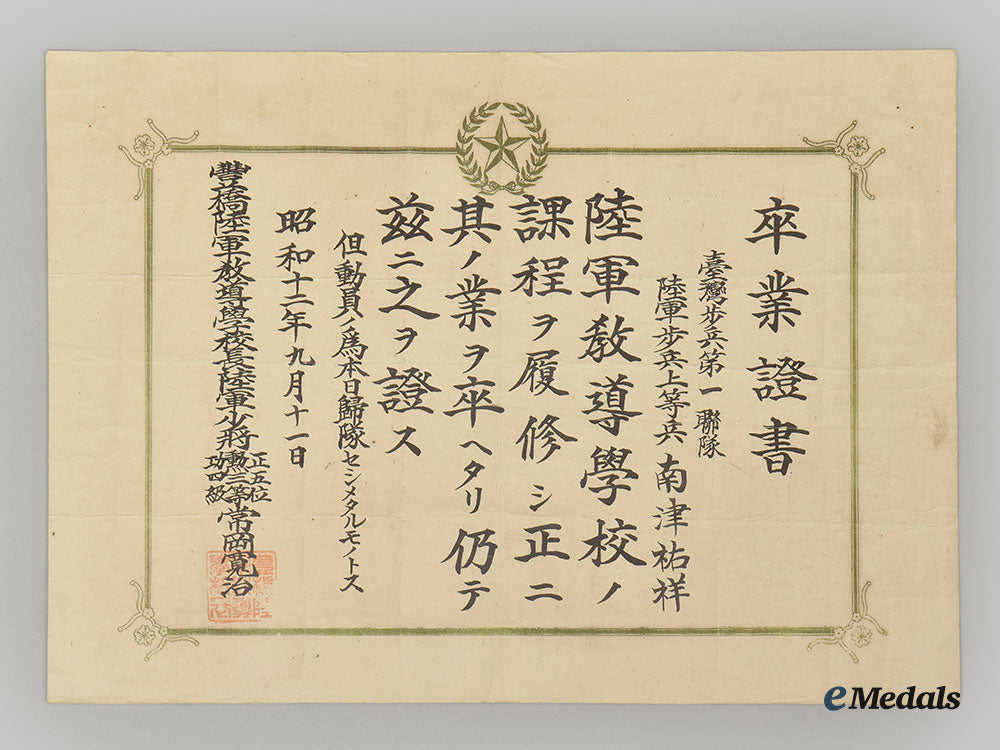 卒業證書
臺灣步兵第一聯隊
陸軍步兵上等兵 南津祐祥
陸軍教導學校ノ
課程ヲ履修シ正ニ
其ノ業ヲ卒ヘタリ仍テ
茲ニ之ヲ證ス
但動員ノ爲本日歸隊セシメタルモノトス
昭和十二年九月十一日
豐橋陸軍教導學校長陸軍少將正五位勳三等功四級常岡寬治
eMedals